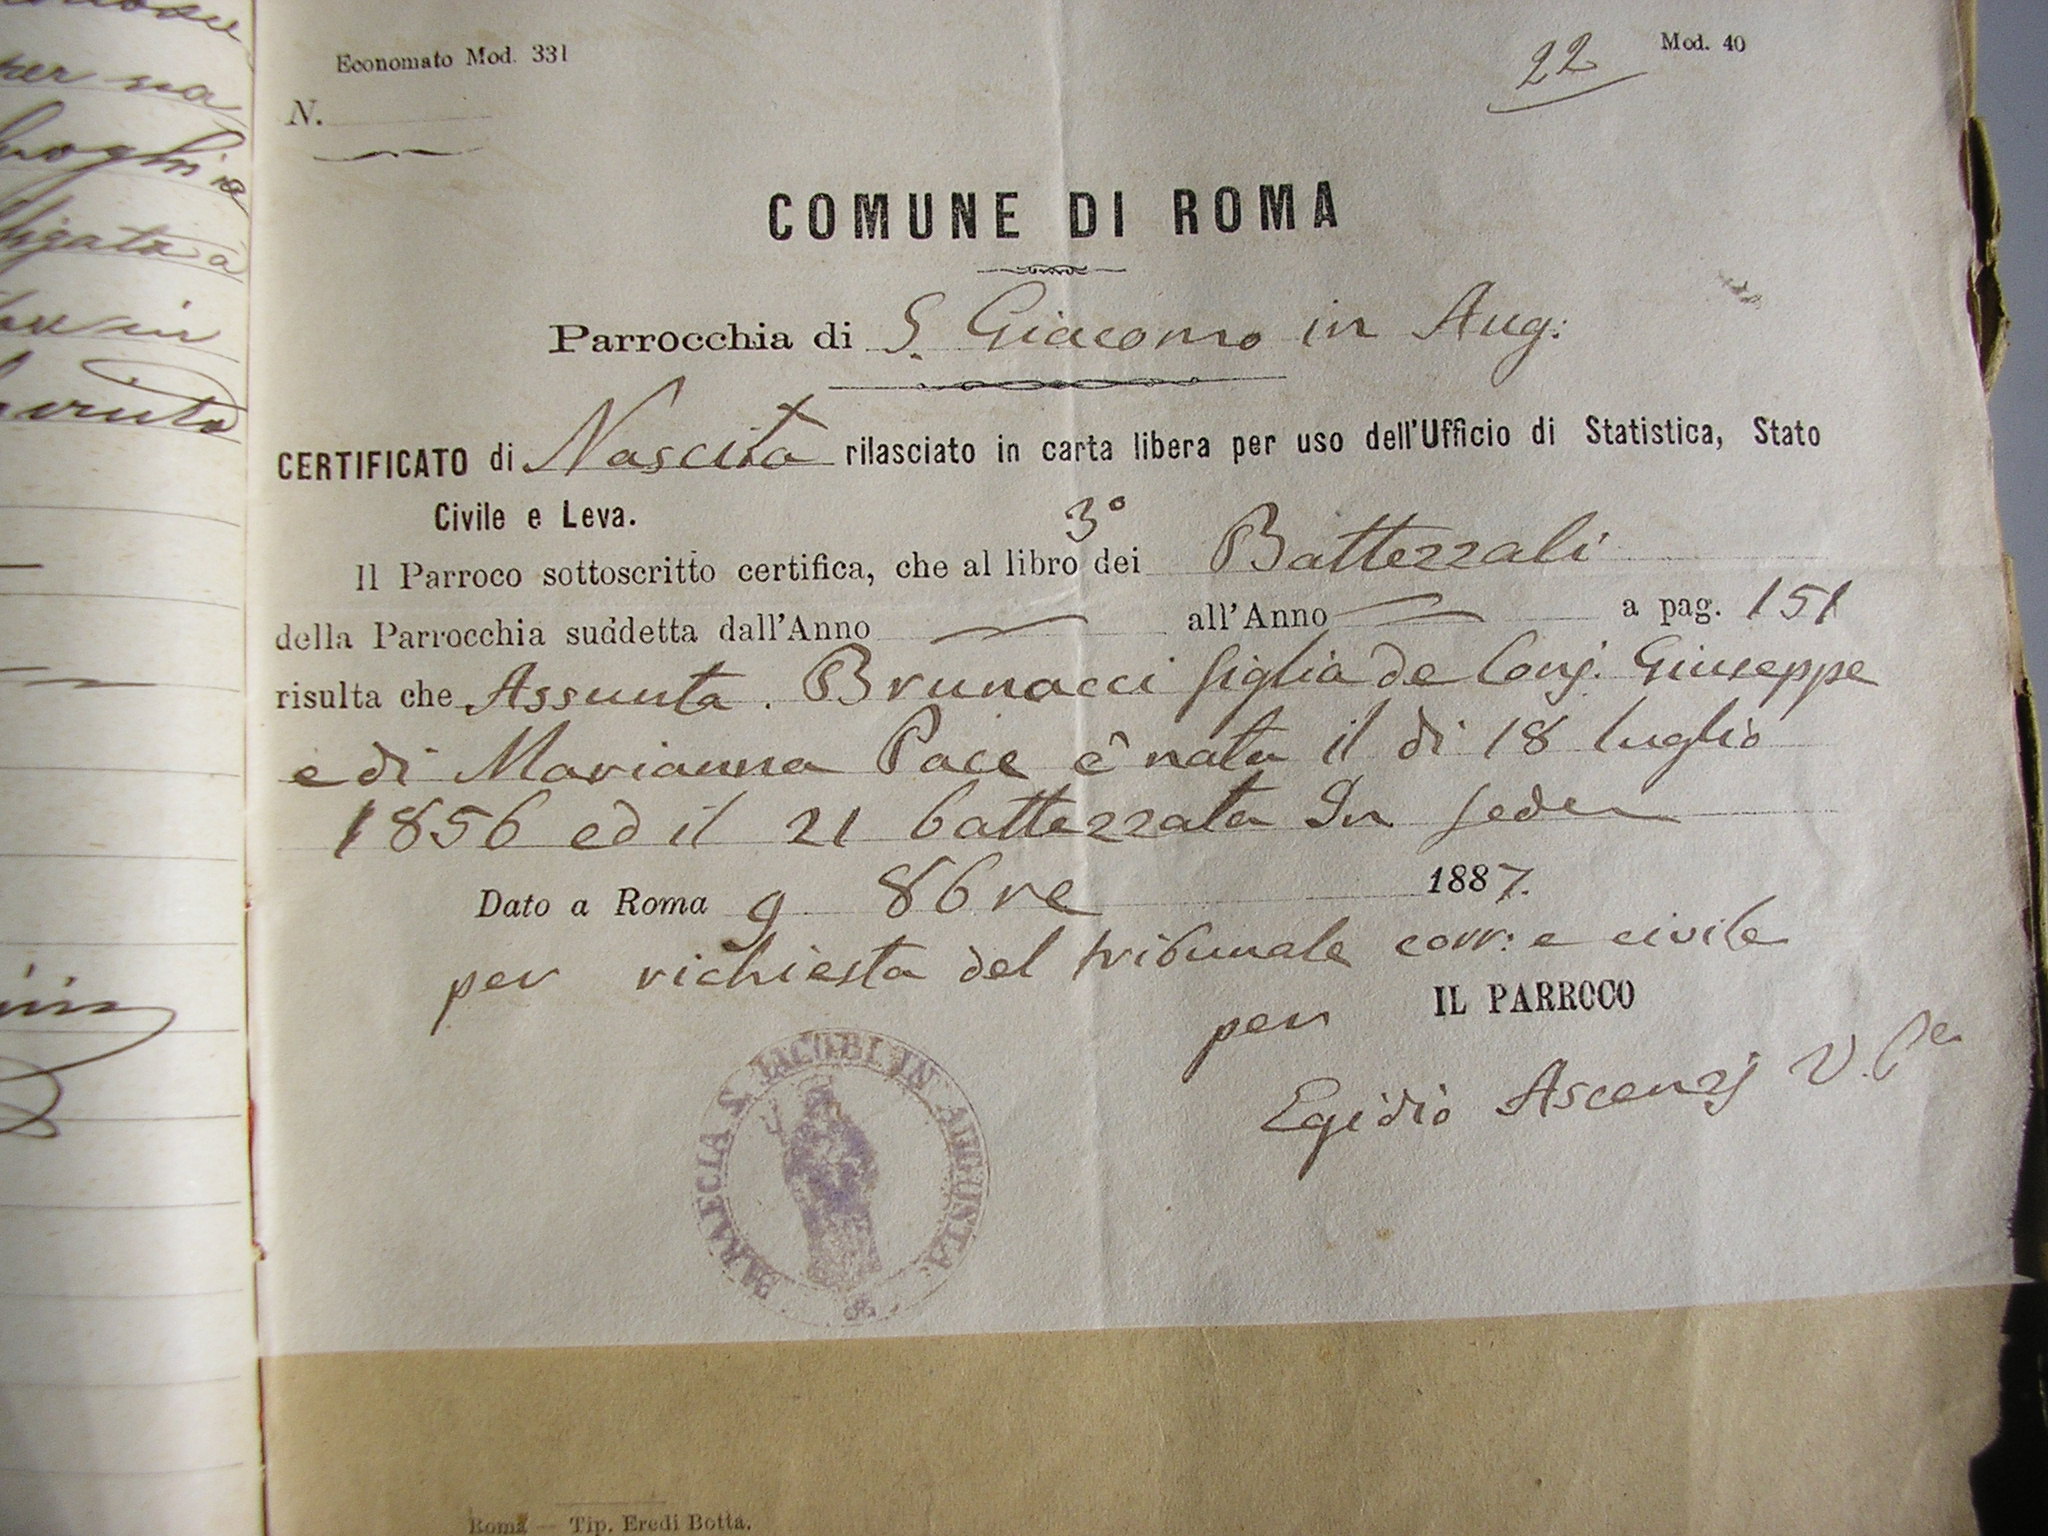 Economato Mod. 331
22
Mod. 40
N.
COMUNE DI ROMA
Parrocchia di S. Giacomo in Aug:
CERTIFICATO di Nascita rilasciato in carta libera per uso dell'Ufficio di Statistica, Stato
Civile e Leva.
Il Parroco sottoscritto certifica, che al libro 3° dei Battezzati
della Parrocchia suddetta dall'Anno all'Anno a pag. 151
risulta che Assunta Brunacci figlia de Conj. Giuseppe
e di Marianna Pace è nata il dì 18 luglio
1856 ed il 21 battezzata In Sede
Dato a Roma 9 8bre 1887.
per richiesta del tribunale corr: e civile
per IL PARROCO
Egidio Ascenzj V. Pe
PARAECIA S. IACOBI IN AUGUSTA
Roma — Tip. Eredi Botta.